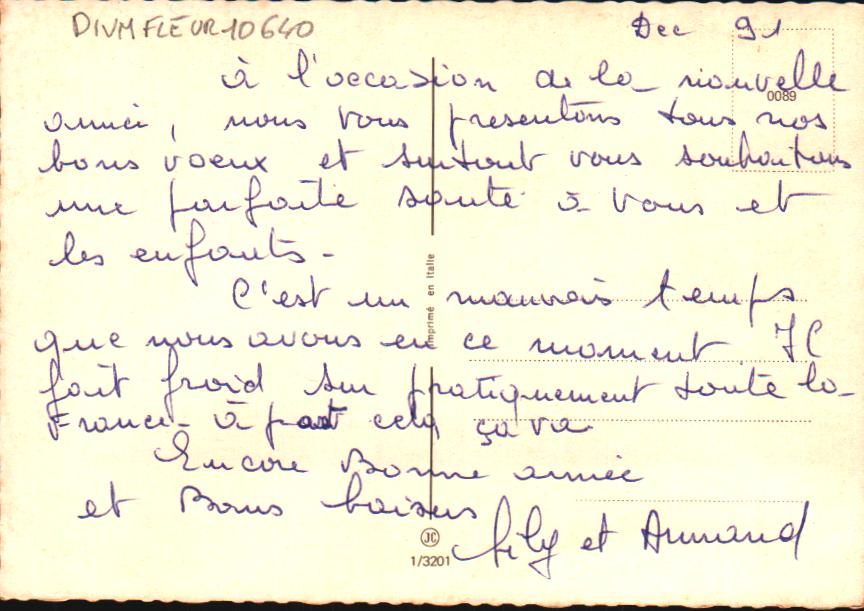 DIVMFLEUR10640
Dec 91
0089
à l'occasion de la nouvelle
année, nous vous presentons tous nos
bons voeux et surtout vous souhaitons
une parfaite santé à vous et
les enfants -
C'est un mauvais temps
que nous avons en ce moment. Il
fait froid sur pratiquement toute la
France - à part cela ça va.
Encore Bonne année
et Bons baisers
Lily et Armand
imprimé en Italie
JC
1/3201